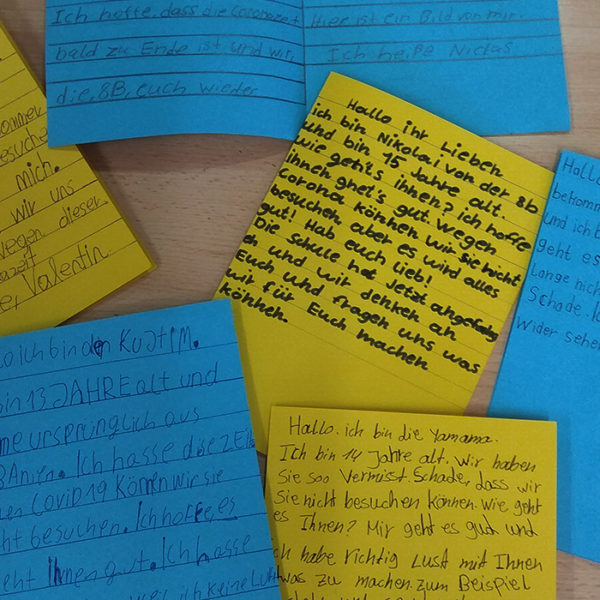 Ich hoffe, dass die Coronazeit
bald zu Ende ist und wir,
die, 8B, euch wieder
Hier ist ein Bild von mir.
Ich heiße Niclas
mich.
wir uns
wegen dieser
Valentin.
Hallo ihr Lieben
ich bin Nikolai von der 8b
und bin 15 Jahre alt.
wie geht's ihnen? ich hoffe
ihnen ghet's gut. Wegen
Corona können wir sie nicht
besuchen aber es wird alles
gut! Hab euch lieb!
Die schule hat jetzt angefang
en und wir denken an
Euch und fragen uns was
wir für Euch machen
können.
Hallo
und ich b
geht es
lange nich
Schade. I
wider sehe
ich bin den KUJTIM.
in 13 JAHRE alt und
me ursprünglich aus
Banien. Ich hasse die Zeit
en Covid 19 können wir sie
ht besuchen. Ich hoffe, es
eht Ihnen gut. Ich hasse
ich keine Luft
Hallo. ich bin die Yamama.
Ich bin 14 Jahre alt. wir haben
Sie soo Vermisst. Schade, dass wir
Sie nicht besuchen können. wie geht
es Ihnen? Mir geht es gut und
ch habe richtig Lust mit Ihnen
was zu machen. zum Beispiel